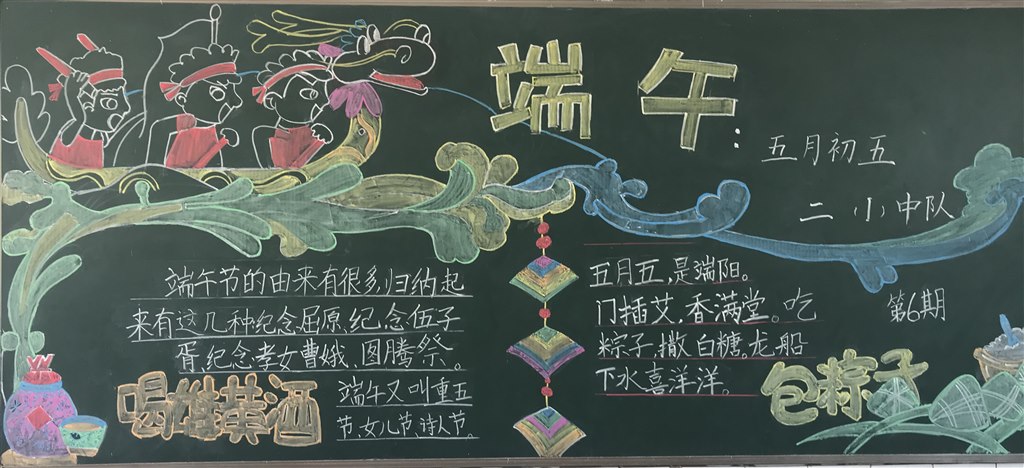 端午:
五月初五
二（小）中队
端午节的由来有很多,归纳起
来有这几种纪念屈原,纪念伍子
胥,纪念孝女曹娥、图腾祭。
端午又叫重五
节、女儿节、诗人节。
喝雄黄酒
五月五,是端阳。
门插艾,香满堂。吃
粽子,撒白糖。龙船
下水喜洋洋。
第6期
包粽子